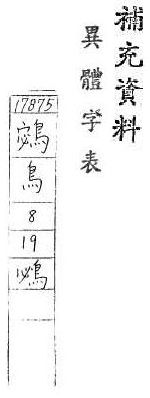 補充資料
異體字表
17875
鳥
8
19
鴓